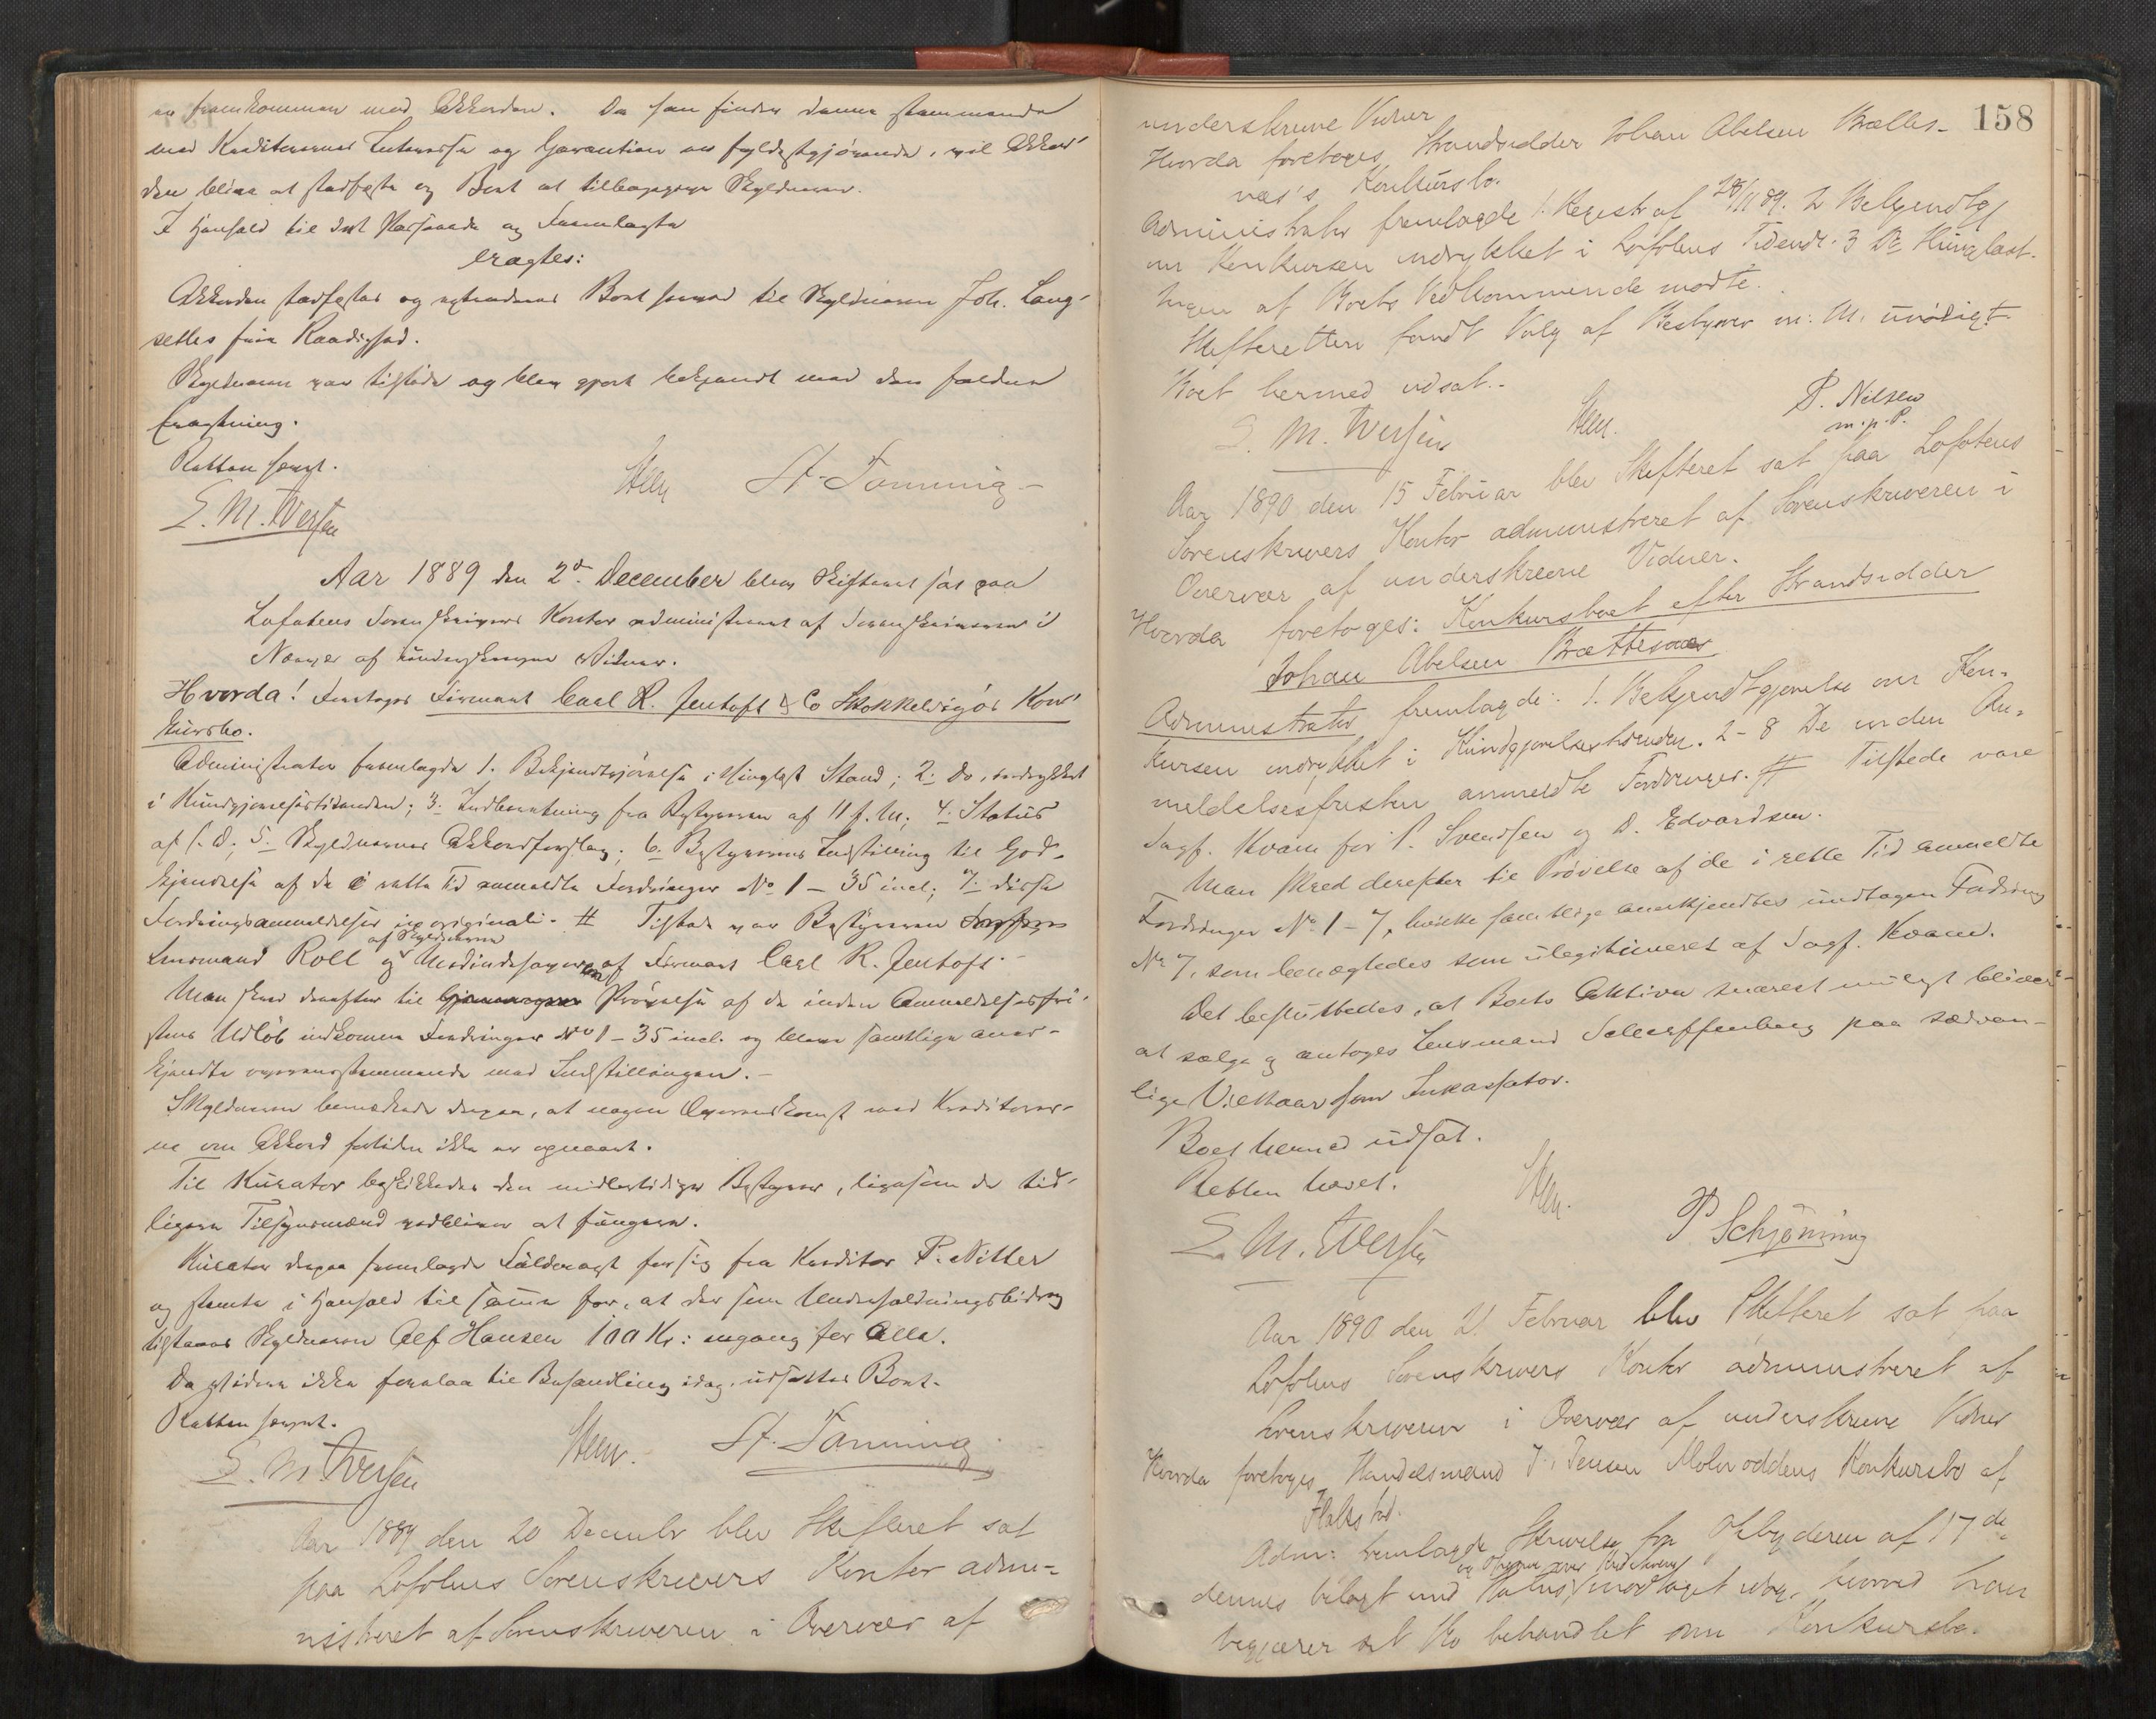 er fremkommen med Akkorden. Da han finder denne stemmende
med Kreditorernes Interesse og Garantien er fyldestgjørende, vil Akkor-
den blive at stadfæste og Boet at tilbagegive Skyldneren.
I Henhold til det Passerede og Fremlagte
eragtes:
Akkorden stadfæstes og extraderes Boet herved til Skyldneren Joh. Lang-
setles frie Raadighed.
Skyldneren var tilstede og blev gjort bekjendt med den faldne
Eragtning.
Retten hævet.
E. M. Wersen Steen St. Tønning
Aar 1889 den 2d. December blev Skifteret sat paa
Lofotens Sorenskrivers Kontor administreret af Sorenskriveren i
Nærvær af underskrevne Vidner.
Hvorda! Foretoges Firmaet Carl R. Jentoft & Co Stokkevigós Kon-
kursbo.
Administrator fremlagde 1. Bekjendtgjørelse i thinglæst Stand; 2. do. indrykket
i Kundgjørelsestidenden; 3. Indberetning fra Bestyreren af 11 f. M; 4. Status
af s. D; 5. Skyldnernes Akkordforslag; 6. Bestyrerens Indstilling til God-
kjendelse af de i rette Tid anmeldte Fordringer No 1 - 35 incl; 7. disse
Fordringsanmeldelser in originali. # Tilstede var Bestyreren
Lensmand Roll og af Skyldnerne Medindehaveren af Firmaet Carl R. Jentoft.
Man skred derefter til Prøvelse af de inden Anmeldelsesfri-
stens Udløb indkomne Fordringer No 1 - 35 incl. og bleve samtlige aner-
kjendte overensstemmende med Indstillingen.-
Skyldneren bemærkede derpaa, at nogen Overenskomst med Kreditorer-
ne om Akkord fortiden ikke er opnaaet.
Til Kurator beskikkedes den midlertidige Bestyrer, ligesom de tid-
ligere Tilsynsmænd vedbliver at fungere.
Kurator derpaa fremlagde Fuldmagt for sig fra Kreditor P. Nitter
og stemte i Henhold til samme for, at der som Underholdningsbidrag
tilstaaes Skyldneren Alf Hansen 100 Kr: engang for Alle.
Da videre ikke forelaa til Behandling idag, udsattes Boet.
Retten hævet.
E. M. Wersen Steen. St. Tønning
Aar 1889 den 20 Decembr blev Skifteret sat
paa Lofotens Sorenskrivers Kontor admi-
nistreret af Sorenskriveren i Overvær af
158
underskrevne Vidner
Hvorda foretoges Strandsidder Johan Abelsen Brattes-
næs's Konkursbo.
Administrator fremlagde 1. Registr af 28/11 89. 2 Bekjendtg
om Konkursen indrykket i Lofotens Tidende. 3 Do thinglæst.
Ingen af Boets Vedkommende mødte.
Skifteretten fandt Valg af Bestyrer m. M. unødigt.
Boet hermed udsat.-
E. M. Wersen Steen. P. Nilsen
m. p. P.
Aar 1890 den 15 Februar blev Skifteret sat paa Lofotens
Sorenskrivers Kontor administreret af Sorenskriveren i
Overvær af underskrevne Vidner.
Hvorda foretoges: Konkursboet efter Strandsidder
Johan Abelsen Brattesnæs
Administrator fremlagde: 1. Bekjendtgjørelse om Kon-
kursen indrykket i Kundgjørelsestidenden. 2 - 8 De inden An-
meldelsesfristen anmeldte Fordringer. # Tilstede vare
Sagf. Kvam for P. Svendsen og D. Edvardsen.
Man skred derefter til Prøvelse af de i rette Tid anmeldte
Fordringer No 1 - 7, hvilke samtlige anerkjendtes undtagen Fordring
No 7, som benægtedes som ulegitimeret af Sagf. Kvam.
Det besluttedes, at Boets Aktiva snarest muligt bliver
at sælge og antoges Lensmand Scharffenberg paa sædvan-
lige Vilkaar som Inkassator.
Boet hermed udsat.
Retten hævet.
E. M. Wersen Steen. P Schjønning
Aar 1890 den 21. Februar blev Skifteret sat paa
Lofotens Sorenskrivers Kontor administreret af
Sorenskriveren i Overvær af underskrevne Vidner
Hvorda foretoges Handelsmand J. Jensen Molnoddens Konkursbo af
Flakstad.
Adm: fremlagde Skrivelse fra Opbyderen af 17de
dennes bilagt med Status og Opgave over Kreditorerne modtaget idag, hvorved han
begjærer sit Bo behandlet som Konkursbo.